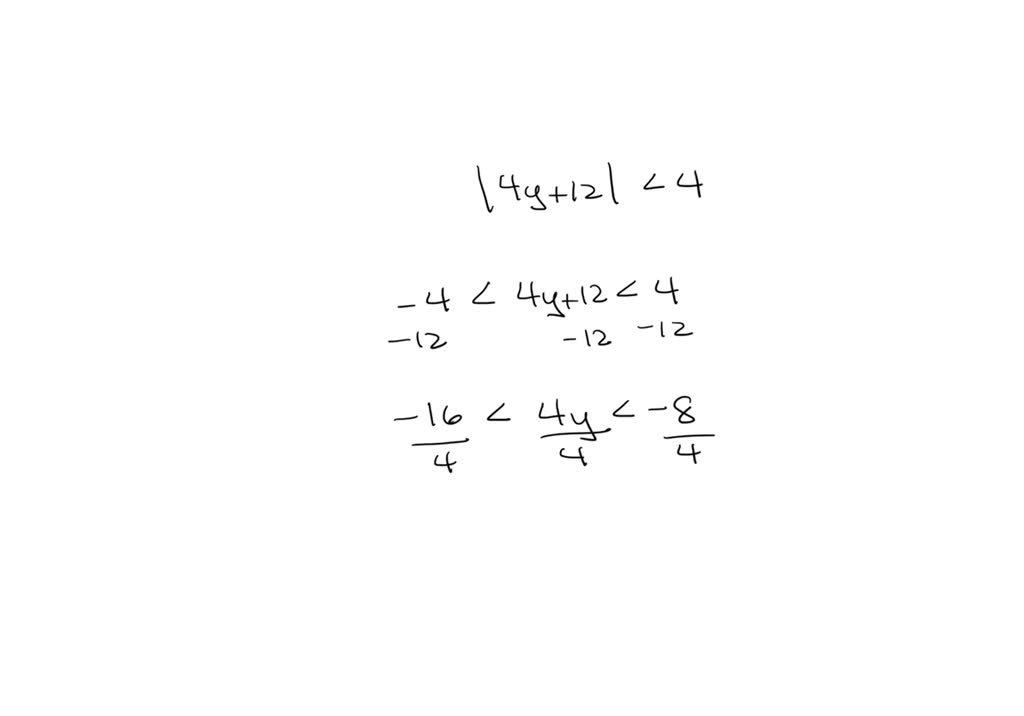 |4y+12| < 4
-4 < 4y+12 < 4
-12 -12 -12
-16 < 4y < -8
4 4 4